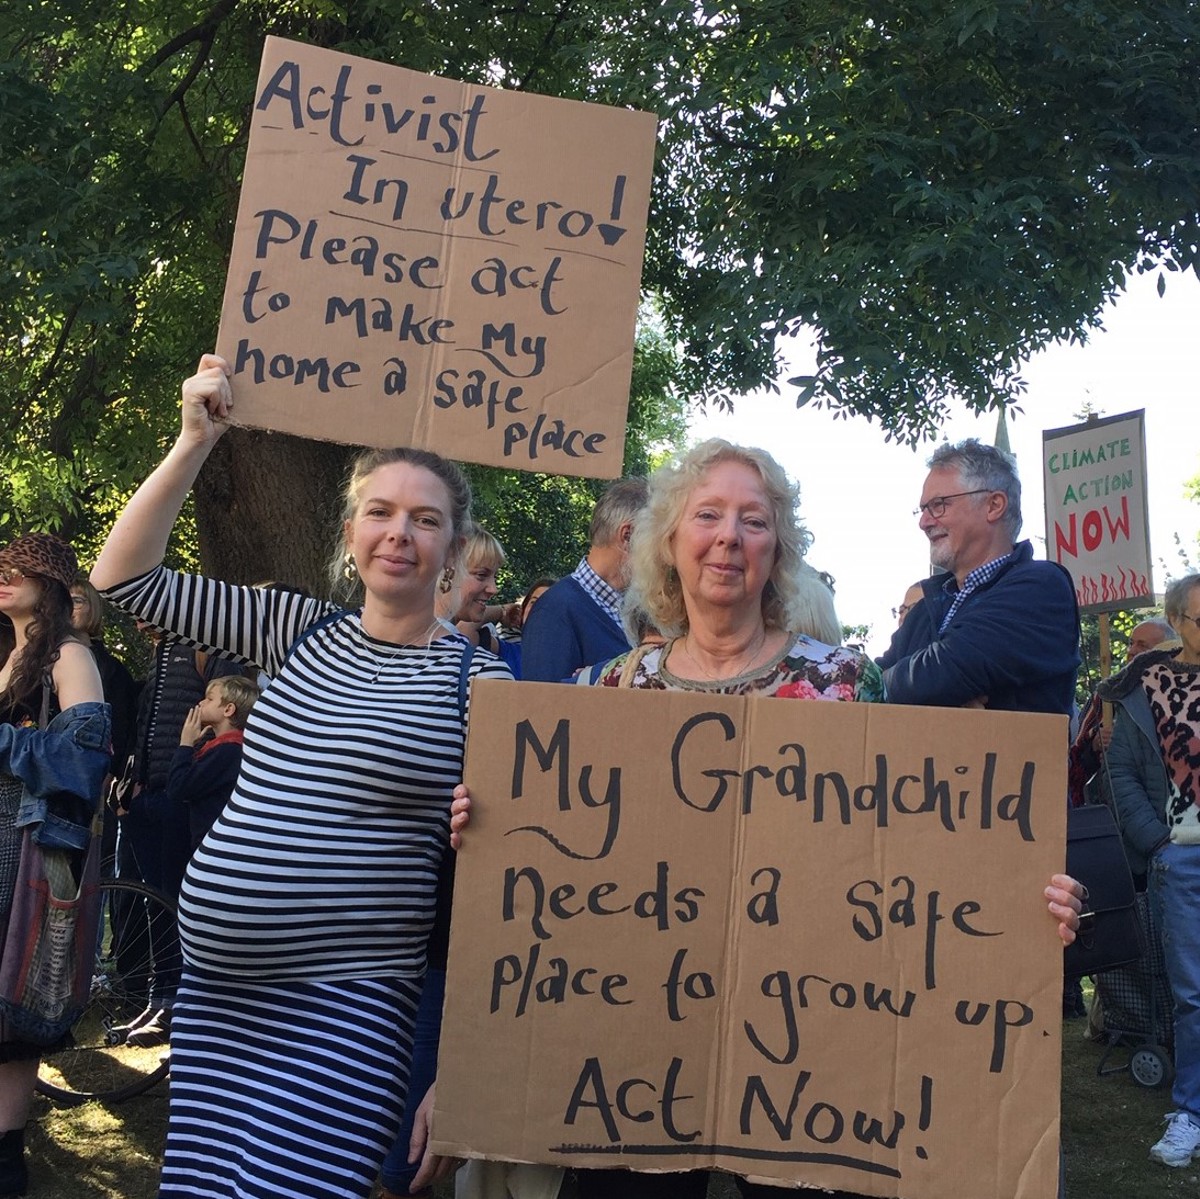 Activist
In utero!
Please act
to make my
home a safe
place
My Grandchild
needs a safe
place to grow up.
Act Now!
CLIMATE
ACTION
NOW